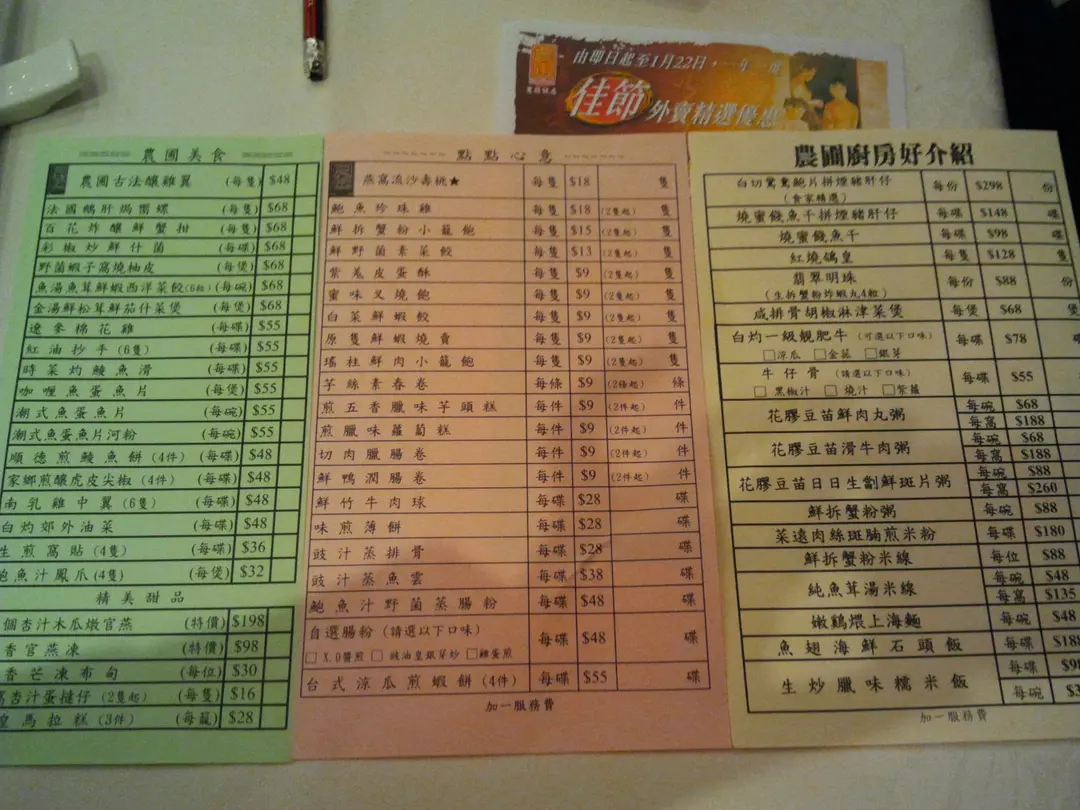 由即日起至1月22日，一年一度
佳節外賣精選優惠
農圃美食
農圃古法釀雞翼 (每隻) $48
法國鵝肝焗響螺 (每隻) $68
百花炸釀鮮蟹柑 (每隻) $68
彩椒炒鮮什菌 (每碟) $68
野菌蝦子窩燒柚皮 (每煲) $68
魚湯魚茸鮮蝦西洋菜餃(6粒) (每碗) $68
金湯鮮松茸鮮茄什菜煲 (每煲) $68
遼參棉花雞 (每碟) $55
紅油抄手 (6隻) (每碟) $55
時菜灼鯪魚滑 (每碟) $55
咖喱魚蛋魚片 (每煲) $55
潮式魚蛋魚片 (每碗) $55
潮式魚蛋魚片河粉 (每碗) $55
順德煎鯪魚餅 (4件) (每碟) $48
家鄉煎釀虎皮尖椒 (4件) (每碟) $48
南乳雞中翼 (6隻) (每碟) $48
白灼郊外油菜 (每碟) $48
生煎窩貼 (4隻) (每碟) $36
鮑魚汁鳳爪 (4隻) (每煲) $32
精美甜品
個杏汁木瓜燉官燕 (特價) $198
香官燕凍 (特價) $98
香芒凍布甸 (每位) $30
杏汁蛋撻仔 (2隻起) (每隻) $16
馬拉糕 (3件) (每籠) $28
點點心意
燕窩流沙壽桃★ 每隻 $18 隻
鮑魚珍珠雞 每隻 $18 (2隻起) 隻
鮮拆蟹粉小籠飽 每隻 $15 (2隻起) 隻
鮮野菌素菜餃 每隻 $13 (2隻起) 隻
紫羗皮蛋酥 每隻 $9 (2隻起) 隻
蜜味叉燒飽 每隻 $9 (2隻起) 隻
白菜鮮蝦餃 每隻 $9 (2隻起) 隻
原隻鮮蝦燒賣 每隻 $9 (2隻起) 隻
瑤柱鮮肉小籠飽 每隻 $9 (2隻起) 隻
芋絲素春卷 每條 $9 (2條起) 條
煎五香臘味芋頭糕 每件 $9 (2件起) 件
煎臘味蘿蔔糕 每件 $9 (2件起) 件
切肉臘腸卷 每件 $9 (2件起) 件
鮮鴨潤腸卷 每件 $9 (2件起) 件
鮮竹牛肉球 每碟 $28 碟
味煎薄餅 每碟 $28 碟
豉汁蒸排骨 每碟 $28 碟
豉汁蒸魚雲 每碟 $38 碟
鮑魚汁野菌蒸腸粉 每碟 $48 碟
自選腸粉 (請選以下口味) 每碟 $48 碟
□ X.O醬煎 □ 豉油皇銀芽炒 □雞蛋煎
台式涼瓜煎蝦餅 (4件) 每碟 $55 碟
加一服務費
農圃廚房好介紹
白切鴛鴦鮑片拼煙豬肝仔 每份 $298 份
(食家精選)
燒蜜餞魚干拼煙豬肝仔 每碟 $148 碟
燒蜜餞魚干 每碟 $98 碟
紅燒鴿皇 每隻 $128 隻
翡翠明珠 每份 $88 份
(生拆蟹粉炸蝦丸4粒)
咸排骨胡椒淋津菜煲 每煲 $68 煲
白灼一級靚肥牛 (可選以下口味) 每碟 $78 碟
□涼瓜 □金菇 □銀芽
牛仔骨 (請選以下口味) 每碟 $55 碟
□ 黑椒汁 □ 燒汁 □紫蘿
花膠豆苗鮮肉丸粥 每碗 $68
每窩 $188
花膠豆苗滑牛肉粥 每碗 $68
每窩 $188
花膠豆苗日日生劏鮮斑片粥 每碗 $88
每窩 $260
鮮拆蟹粉粥 每碗 $88
菜遠肉絲斑腩煎米粉 每碟 $180
鮮拆蟹粉米線 每位 $88
純魚茸湯米線 每碗 $48
每窩 $135
嫩鷄煨上海麵 每碗 $48
魚翅海鮮石頭飯 每碟 $188
生炒臘味糯米飯 每碟 $98
每碗 $3
加一服務費